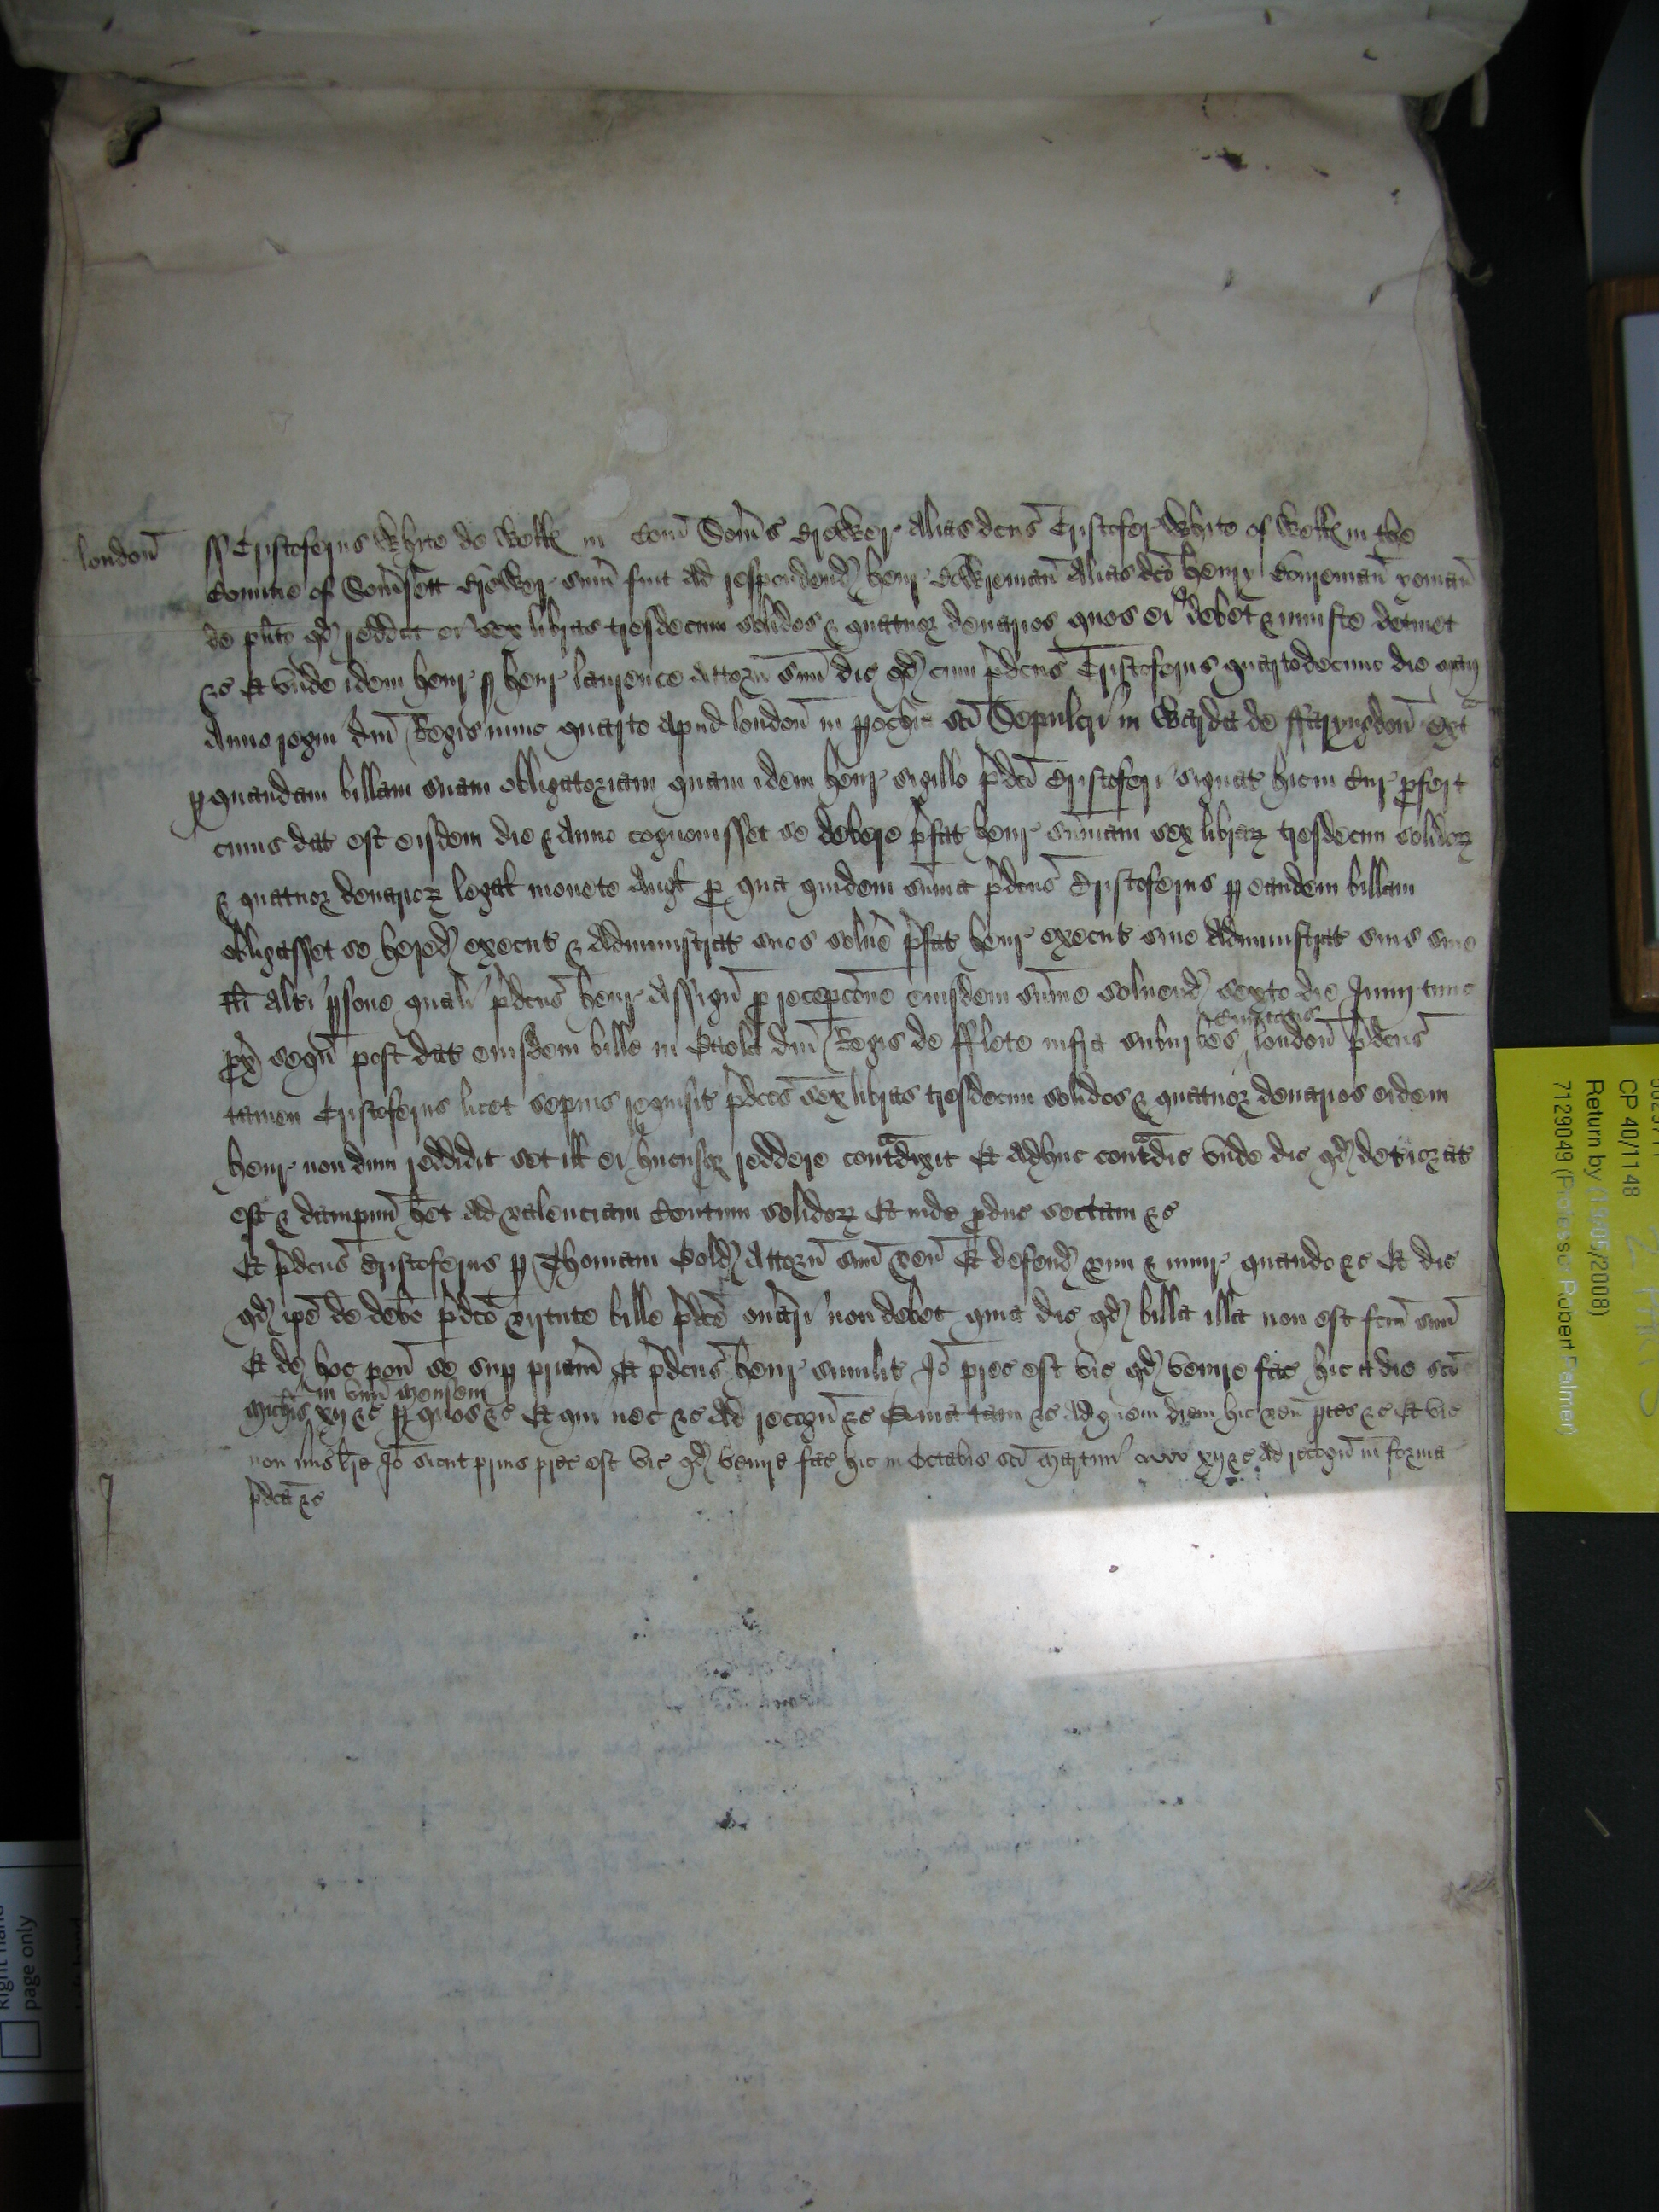 londoñ
ss Cristoferus Whyte de Well in Com̃ Som̃s Brewer alias dcũs Cristofer Whyte of Well in the
Countie of Som̃sett Brewer sum̃ fuit ad respondend henr alias dco henry yoman
de pĺito qd reddat ei sex libras tresdecim solidos & quatuor denarios quos ei debet & iniuste detinet
&c Et unde idem henr p henr laurence Attorñ suũ dic qd cum p̃dcũs Cristoferus quartodecimo die maij
Anno regni dñi Regis nunc quarto apud londoñ in pochia sc̃i Sepulcri in Warda de ffaryngdoñ ext̃
p quandam billam suam obligatoriam quam idem henr sigillo p̃dc̃i Cristoferi signat hic in Cur p̃fert
cuius dat est eisdem die & Anno cognouisset se debere p̃fat henr sum̃am sex librar tresdecim solidor
& quatuor denarior legal monete Angl p̃ qua quidem sum̃a p̃dcũs Cristoferus p eandem billam
obligasset se hered execut & Administrat suos solue p̃fat henr execut siue Administrat suis siue
alt̃i psone quali p̃dcũs henr assigñ p̃ recepc̃one eiusdem sum̃e soluend sexto die Junij tunc
px̃ sequñ post dat eiusdem bille in Gaola dñi Regis de fflete infra suburbes londoñ p̃dcũs
Ciuitatis
tamen Cristoferus licet sepius requisit p̃dcãs sex libras tresdecim solidos & quatuor denarios eidem
henr non dum reddidit set itt ei hucusq reddere contradixit Et adhuc contradic unde dic qd deteriorat
est & dampnũ het ad valenciam Centum solidor Et inde p̃duc sectam &c
Et p̃dcũs Cristoferus p Thomam Attorñ suũ veñ Et defend vim & iniur quando &c Et dic
qd ip̃e de debo p̃dc̃o virtute bille p̃dc̃e on̾ari non debet quia dic qd billa illa non est fcm̃ suũ
Et de hoc poñ se sup pat̃riam Et p̃dcũs henr similit Io p̃rec est vic qd venire fac hic a die sc̃i
in unũ mensem
Mich̃is xij &c p quos &c Et qui nec &c ad recogñ &c Quia tam &c ad quem diem hic veñ ptes &c Et vic
non mis b̃re Io sicut prius prec est vic qd venire fac hic in Octabis sc̃i Martini xij &c ad recogñ in forma
p̃dc̃a &c
CP 40/1148
Return by (13/05/2008)
7129049 (Professor Robert Palmer)
Right hand
page only